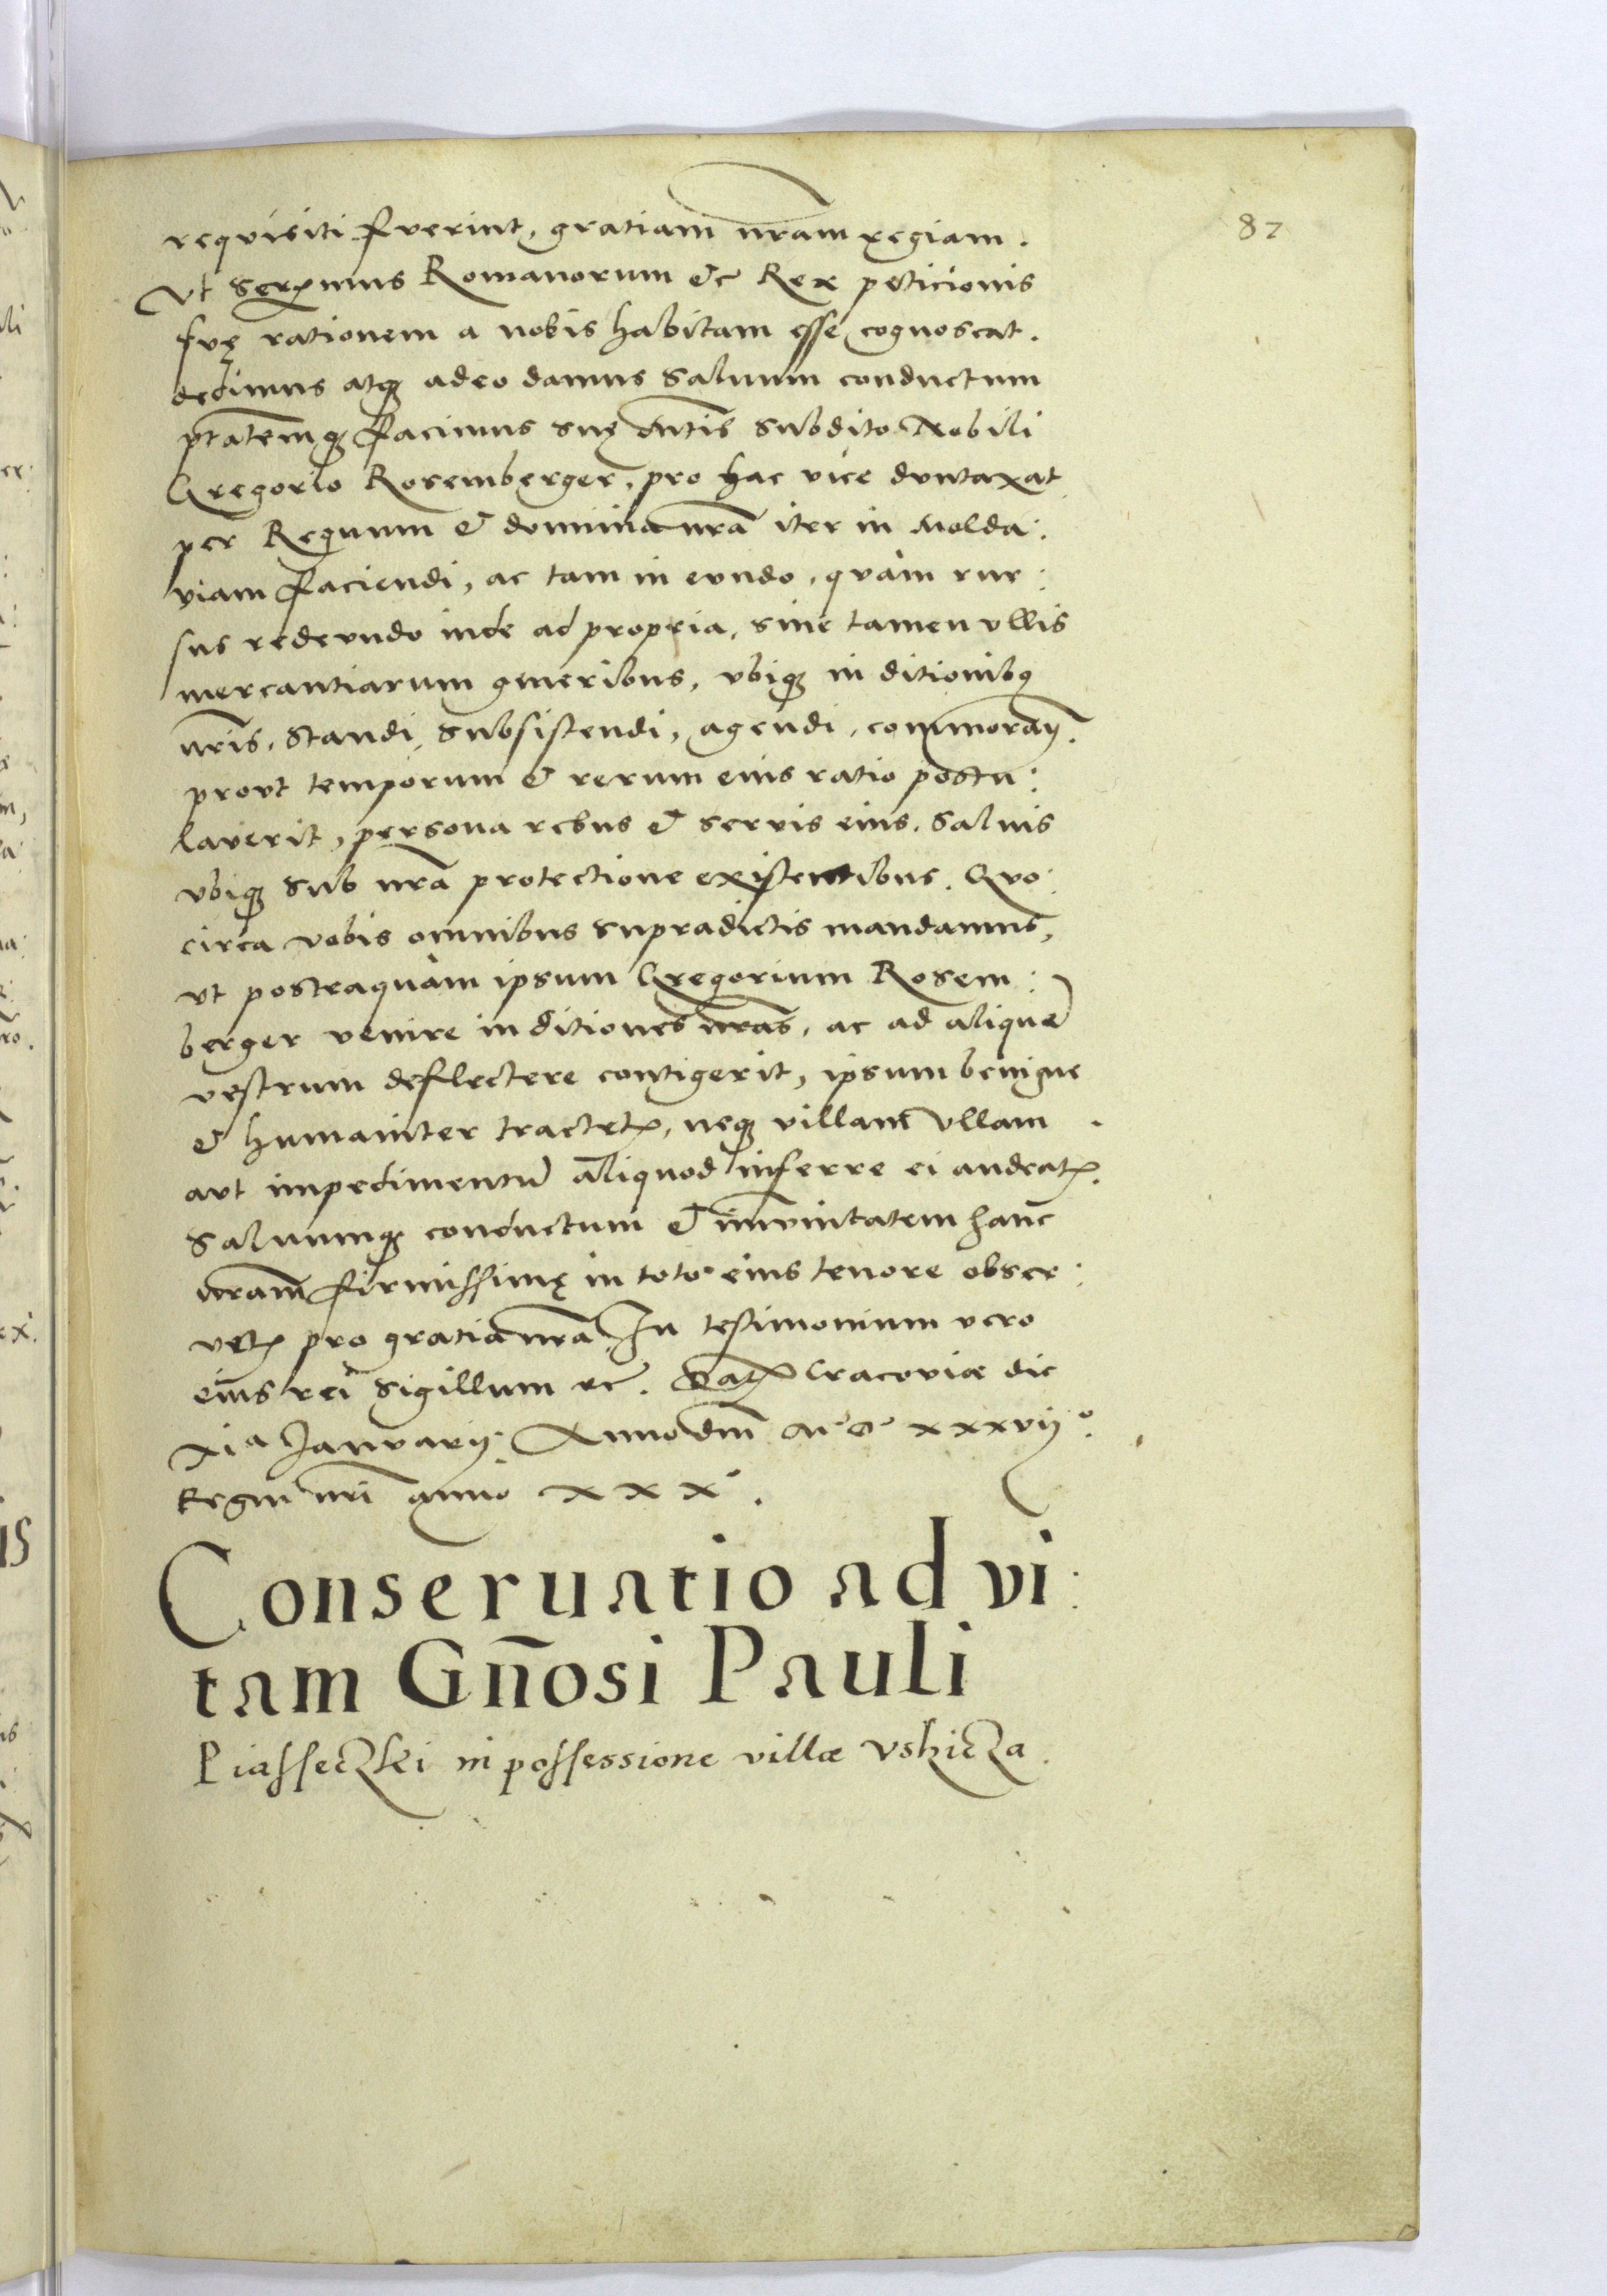 87
requisiti fuerint, gratiam nr̃am regiam.
Vt Serẽmus Romanorum &c Rex peticionis
suę rationem a nobis habitam esse cognoscat.
dedimus atq̃ adeo damus saluum conductum
ptãtemq̃ facimus suę dntĩs subdito Nobili
Gregorio Rosemberger, pro hac vice duntaxat
per Regnum & dominia nrã iter in Molda:
viam faciendi, ac tam in eundo, quàm rur:
sus redeundo inde ad propria, sine tamen vllis
mercantiarum generibus, vbiq̃ in ditionibq
nrĩs, Standi, subsistendi, agendi, commorandj.
prout temporum & rerum eius ratio postu:
lauerit, persona rebus & seruis eius, saluis
vbiq̃ sub nrã protectione existentibus. Quo:
circa vobis omnibus supradictis mandamus,
vt posteaquàm ipsum Gregorium Rosem:
berger venire in ditiones nrãs, ac ad aliquẽ
vestrum deflectere contigerit, ipsum benigne
& humaniter tractetꝭ, neq̃ villam vllam
aut impedimentũ aliquod inferre ei audeatꝭ.
Saluumq̃ conductum & immunitatem hanc
nrãm firmissimę in toto eius tenore obser:
uetꝭ pro gratia nrã. In testimonium vero
eius rei sigillum &c. Datꝭ Cracoviæ die
xia Januarij. Anno dnĩ M D xxxvijo.
Regni nrĩ anno xxxo.
Conseruatio ad vi:
tam Gñosi Pauli
Piasseczki in possessione villæ Vshicza.